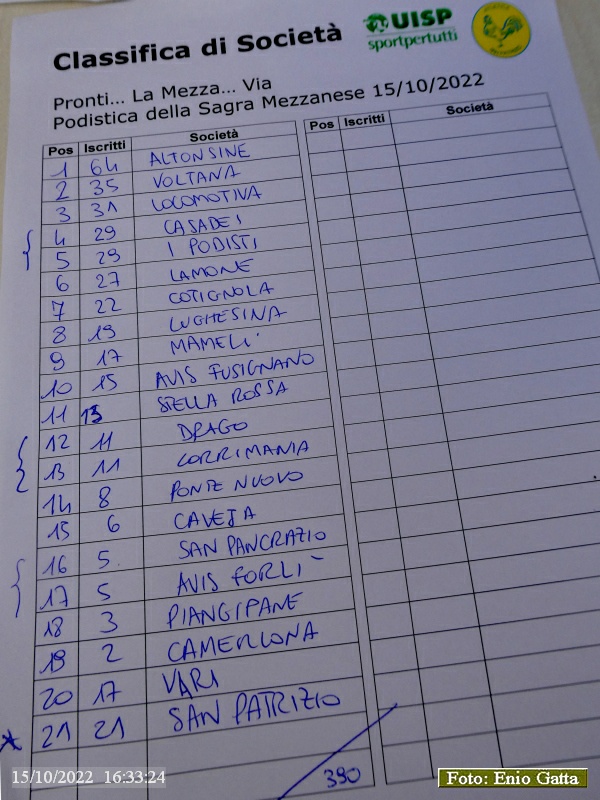 Classifica di Società
UISP
sportpertutti
Pronti... La Mezza... Via
Podistica della Sagra Mezzanese 15/10/2022
Pos Iscritti Società Pos Iscritti Società
1 64 ALFONSINE
2 35 VOLTANA
3 31 LOCOMOTIVA
4 29 CASADEI
5 29 I PODISTI
6 27 LAMONE
7 22 COTIGNOLA
8 19 LUGHESINA
9 17 MAMELI
10 15 AVIS FUSIGNANO
11 13 STELLA ROSSA
12 11 DRAGO
13 11 CORRIMANIA
14 8 PONTE NUOVO
15 6 CAVEJA
16 5 SAN PANCRAZIO
17 5 AVIS FORLI'
18 3 PIANGIPANE
19 2 CAMERLONA
20 17 VARI
* 21 21 SAN PATRIZIO
390
15/10/2022 16:33:24
Foto: Enio Gatta